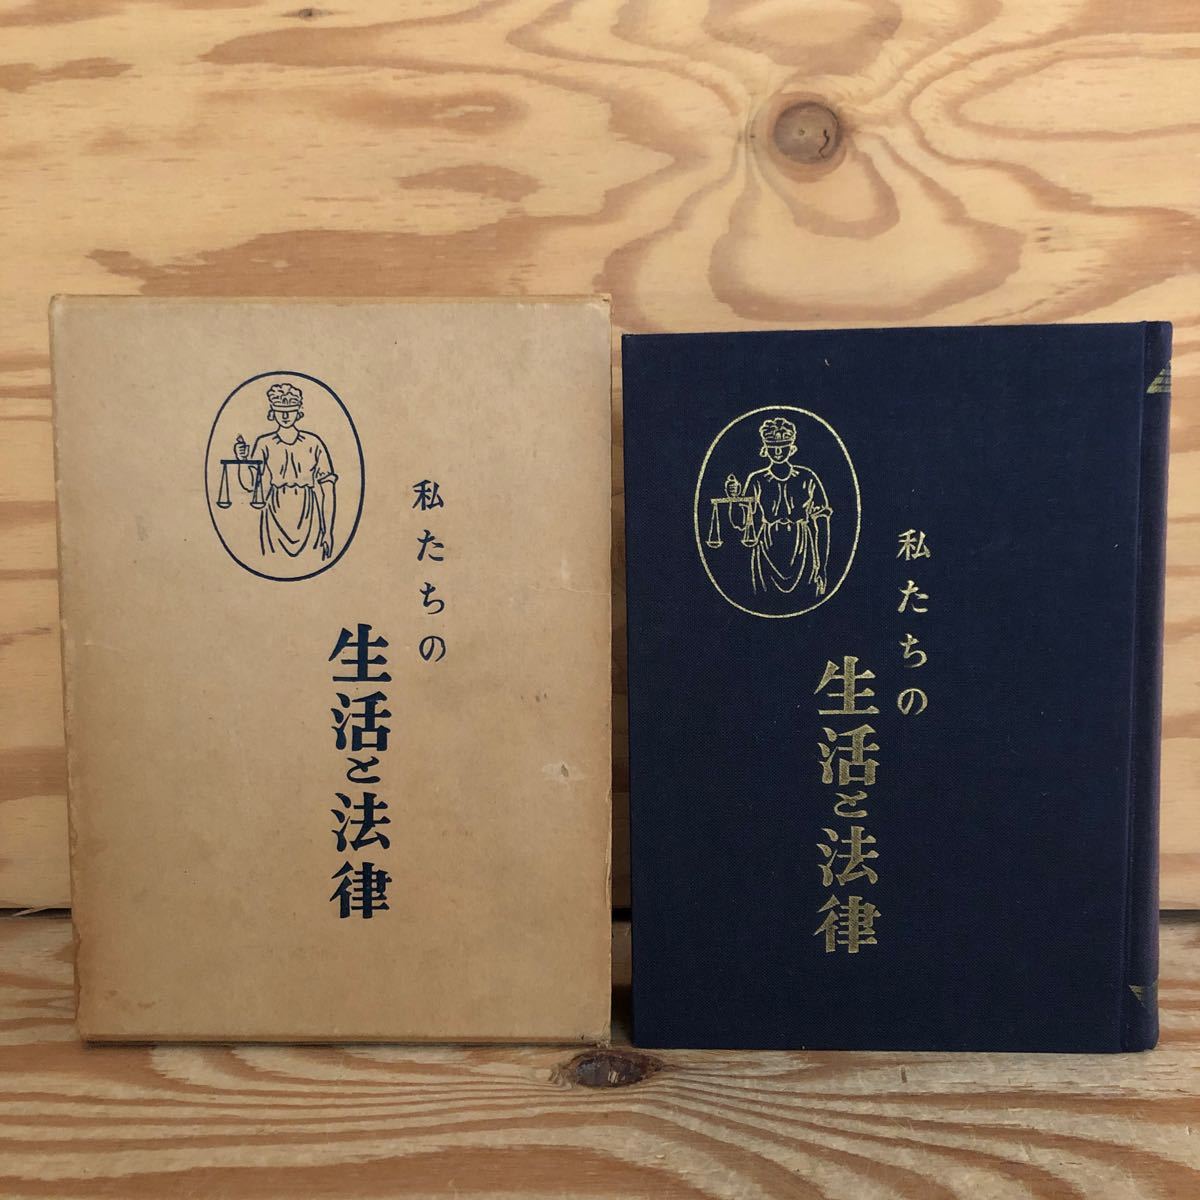 私たちの
生活と法律
私たちの
生活と法律